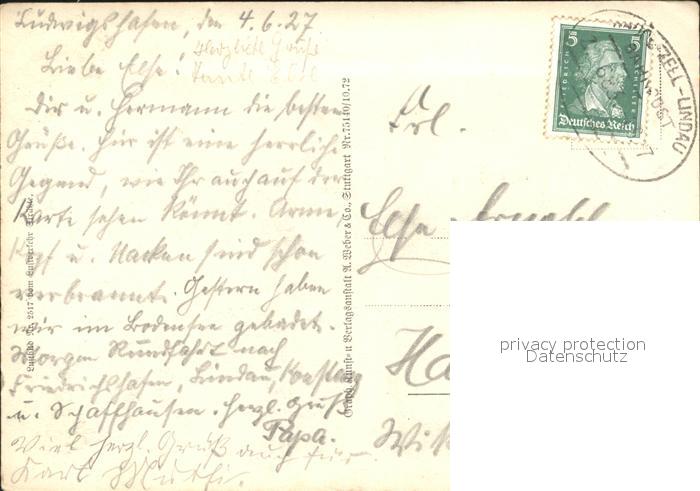 Ludwigshafen, den 4.6.27
Herzliche Grüße
Tante
Liebe Else!
Dir u. Hermann die besten
Grüße. Hier ist eine herrliche
Gegend, wie Ihr auch auf der
Karte sehen könnt. Arme,
Kopf u. Nacken sind schon
verbrannt. Gestern haben
wir im Bodensee gebadet.
Morgen Rundfahrt nach
Friedrichshafen, Lindau,
u. Schaffhausen. Herzl. Gruß
Papa.
Viel herzl. Grüße auch
Karl
Luftbild Nr. 2517 vom Luftverkehr Strähle.
Graph. Kunst- u. Verlagsanstalt A. Weber & Co., Stuttgart Nr. 75140/10.72
5 5
FRIEDRICH SCHILLER
Deutsches Reich
ZELL-LINDAU
BAHNPOST
Frl.
Else
Ha
privacy protection
Datenschutz